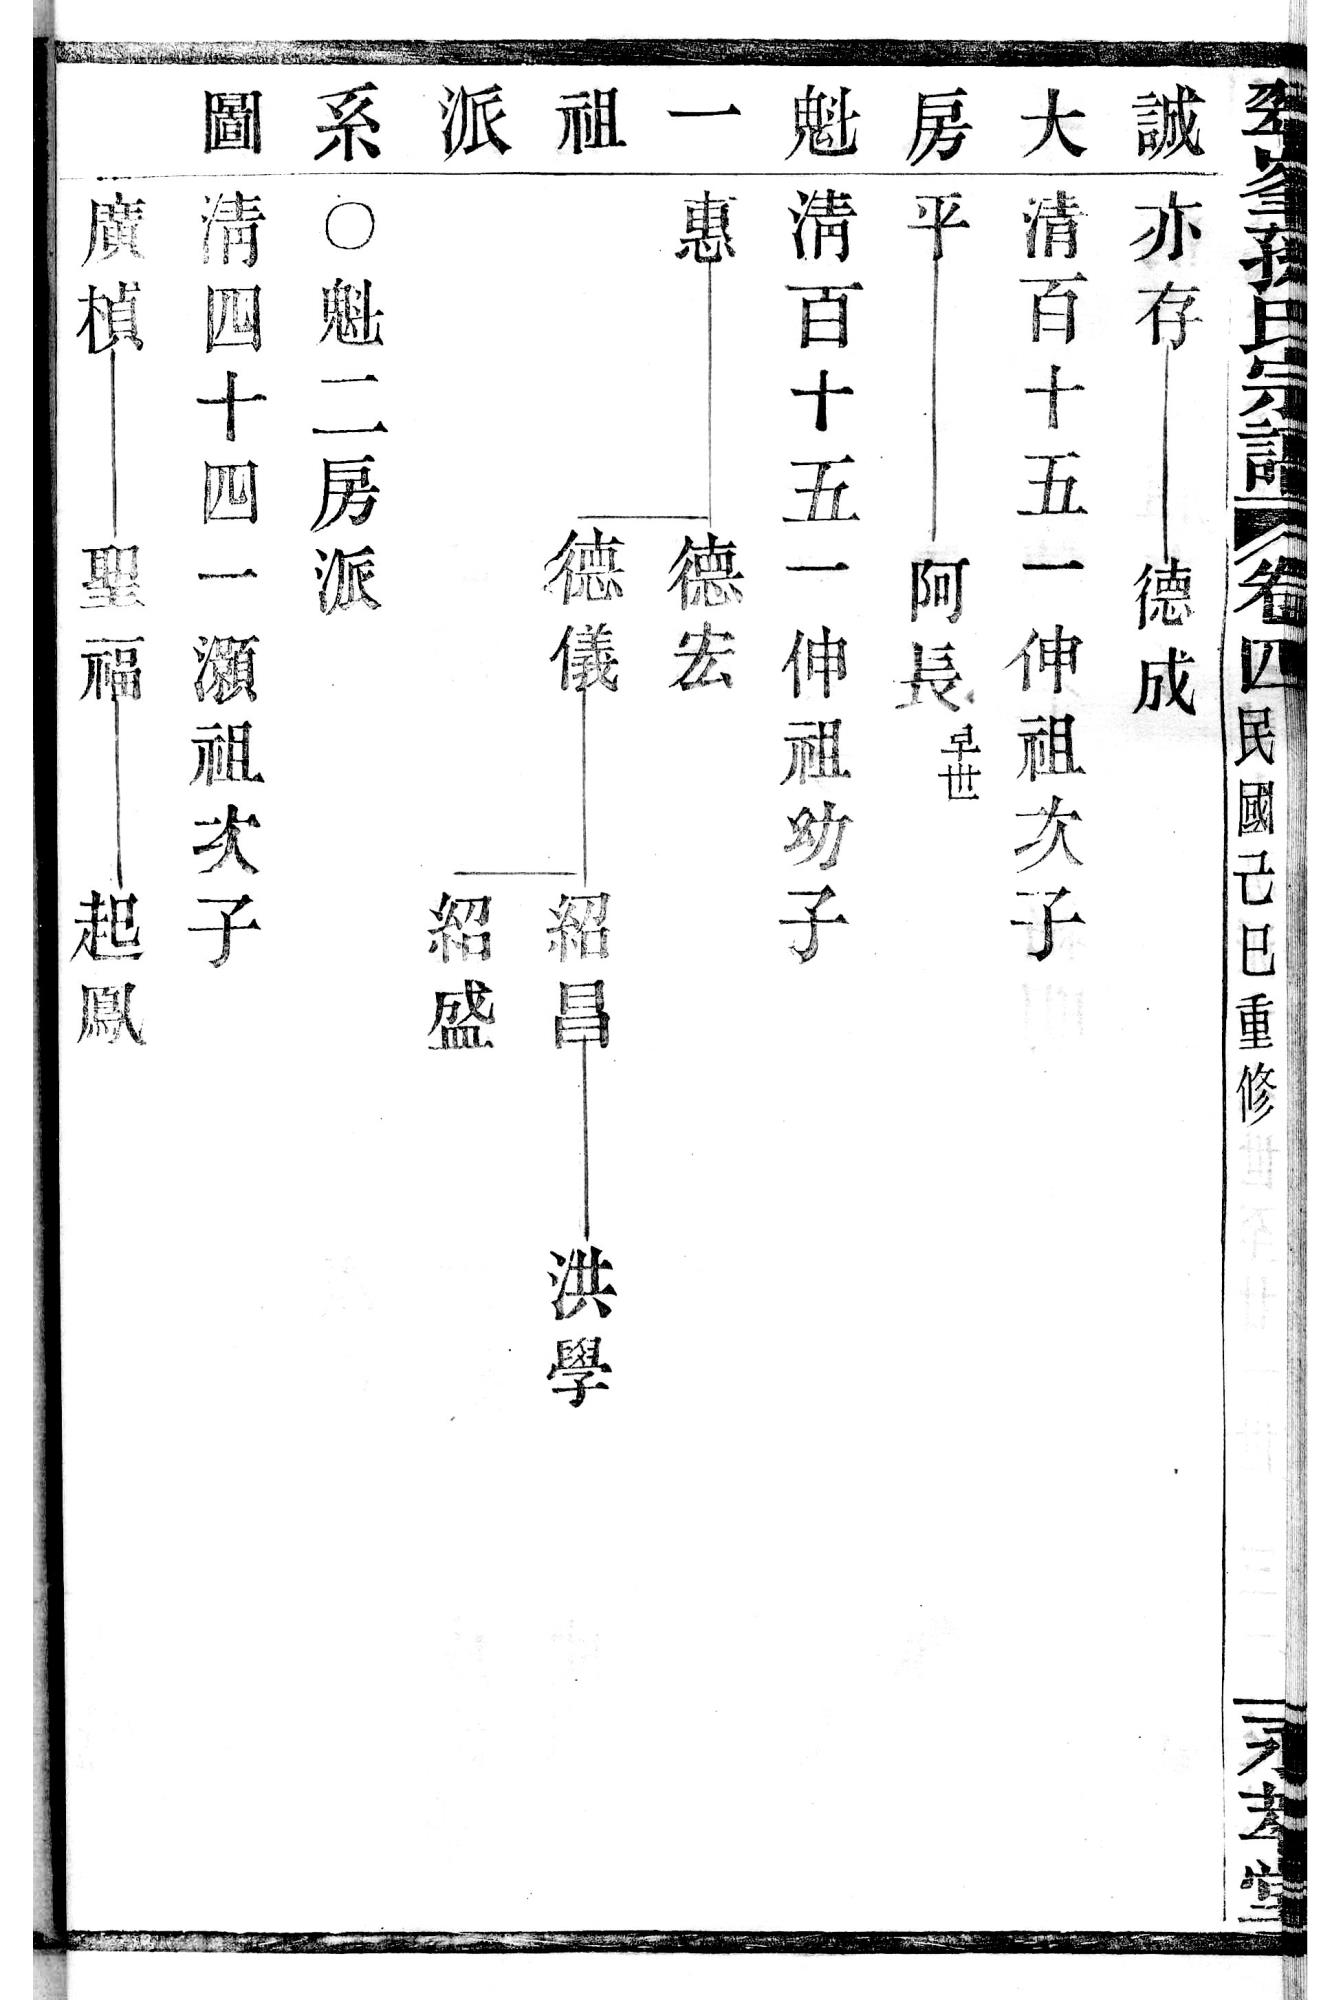 孫氏宗譜 卷四 民國己巳重修
誠大房魁一祖派系圖
亦存 德成
清百十五一伸祖次子
平 阿長 早世
清百十五一伸祖幼子
惠 德宏
德儀 紹昌 洪學
紹盛
○魁二房派
清四十四一灝祖次子
廣楨 聖福 起鳳